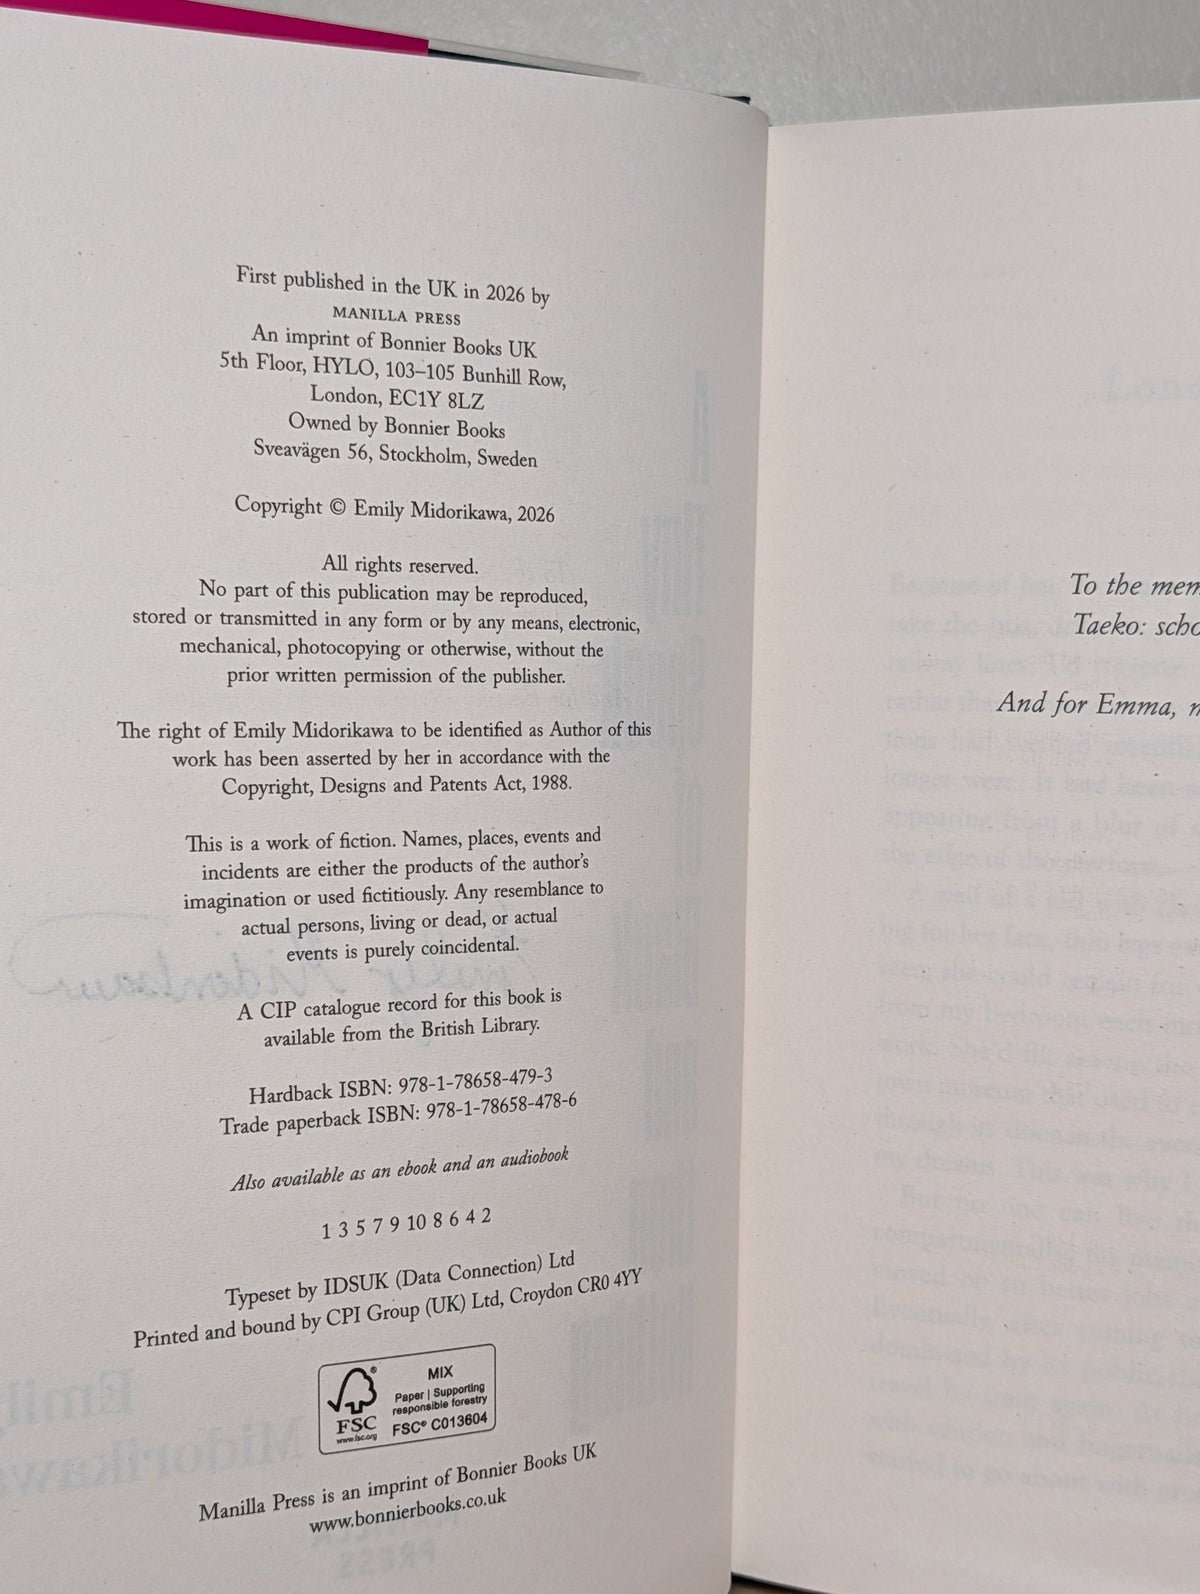 First published in the UK in 2026 by
MANILLA PRESS
An imprint of Bonnier Books UK
5th Floor, HYLO, 103–105 Bunhill Row,
London, EC1Y 8LZ
Owned by Bonnier Books
Sveavägen 56, Stockholm, Sweden
Copyright © Emily Midorikawa, 2026
All rights reserved.
No part of this publication may be reproduced,
stored or transmitted in any form or by any means, electronic,
mechanical, photocopying or otherwise, without the
prior written permission of the publisher.
The right of Emily Midorikawa to be identified as Author of this
work has been asserted by her in accordance with the
Copyright, Designs and Patents Act, 1988.
This is a work of fiction. Names, places, events and
incidents are either the products of the author's
imagination or used fictitiously. Any resemblance to
actual persons, living or dead, or actual
events is purely coincidental.
A CIP catalogue record for this book is
available from the British Library.
Hardback ISBN: 978-1-78658-479-3
Trade paperback ISBN: 978-1-78658-478-6
Also available as an ebook and an audiobook
1 3 5 7 9 10 8 6 4 2
Typeset by IDSUK (Data Connection) Ltd
Printed and bound by CPI Group (UK) Ltd, Croydon CR0 4YY
FSC
www.fsc.org
MIX
Paper | Supporting
responsible forestry
FSC® C013604
Manilla Press is an imprint of Bonnier Books UK
www.bonnierbooks.co.uk
To the mem
Taeko: scho
And for Emma,